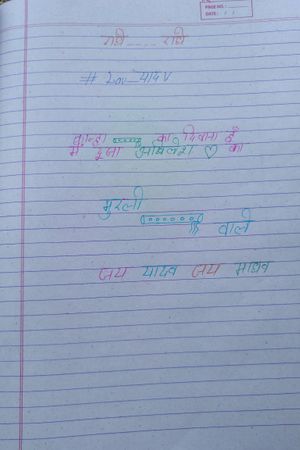 PAGE NO.:
DATE: / /
राधे ..... राधे
कान्हा का दिवाना हूँ
में दूजा अखिलेश ♡ का
मुरली
वाले
जय यादव जय माधव